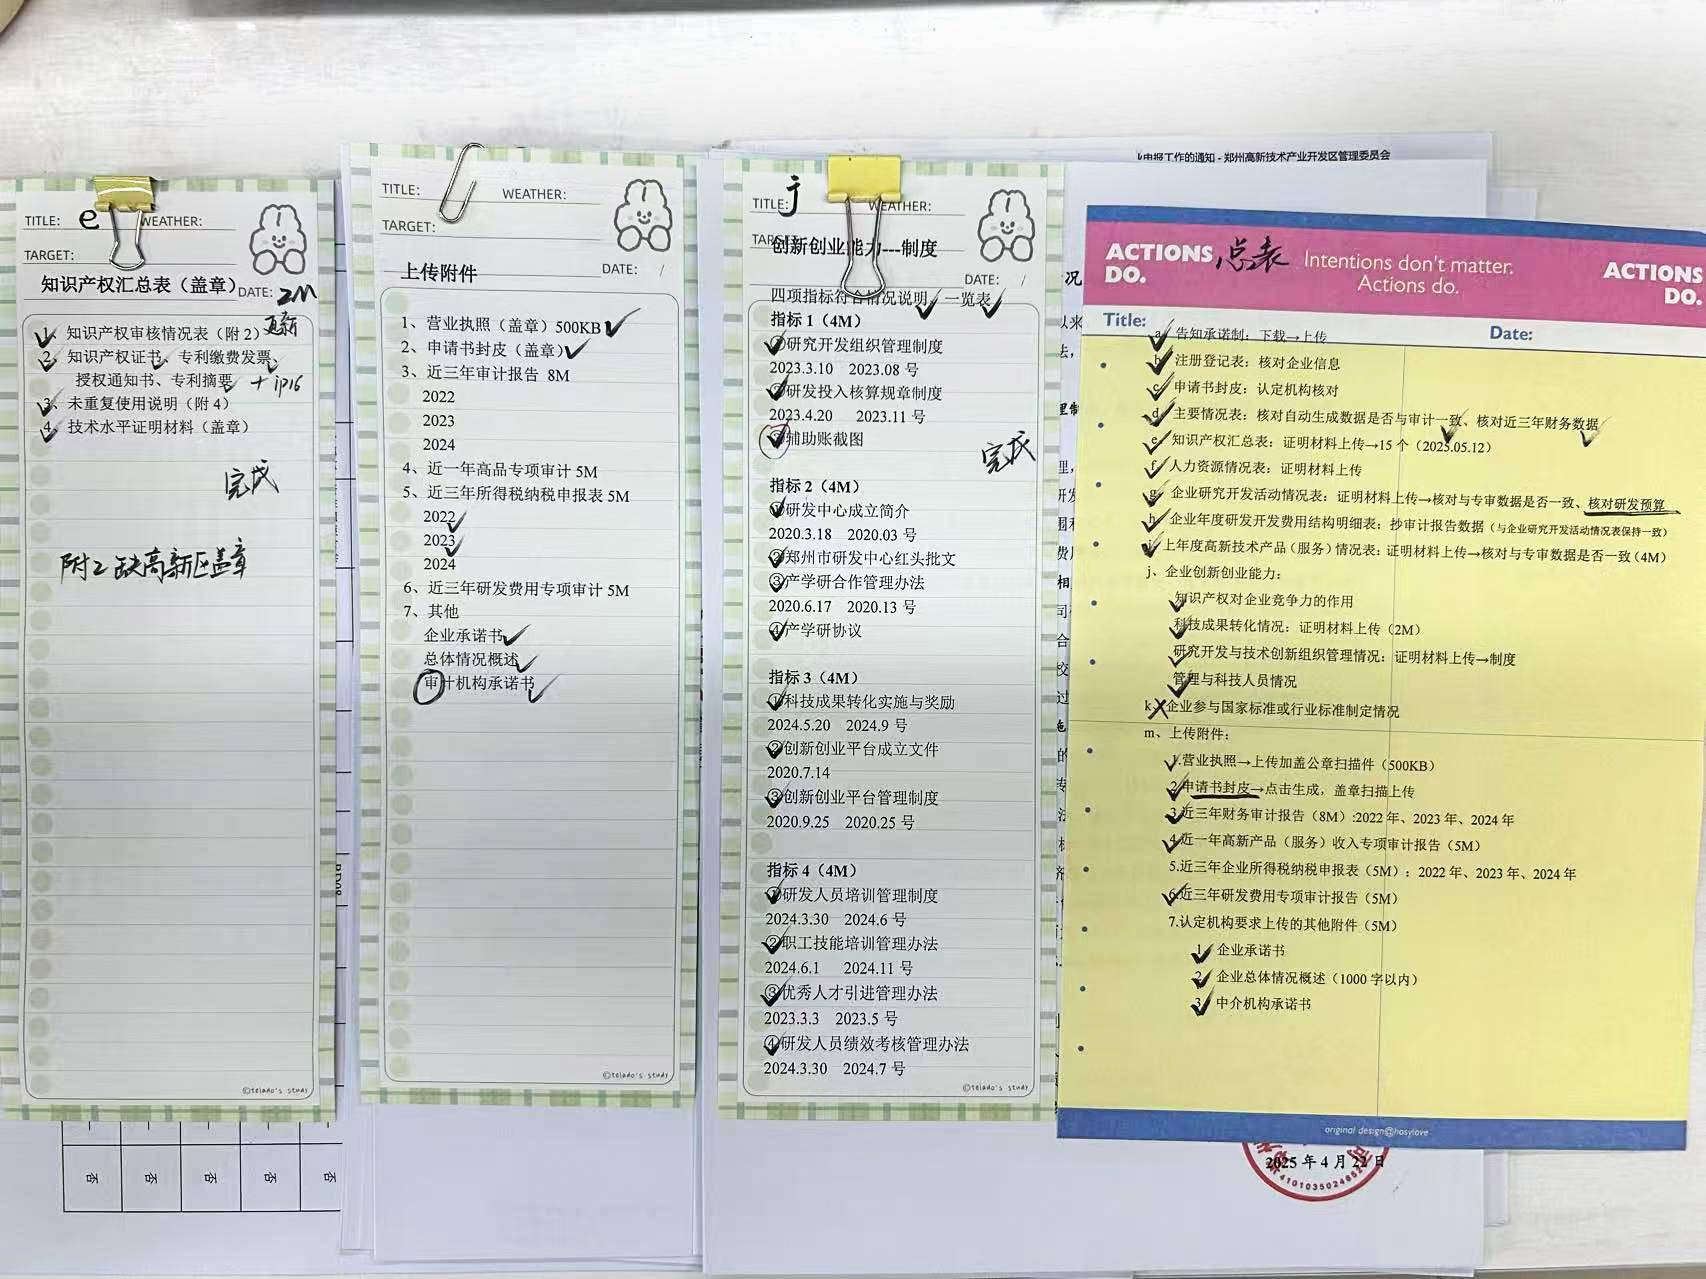 TITLE: e WEATHER:
TARGET:
知识产权汇总表（盖章）DATE: 2M
1、知识产权审核情况表（附 2）更新
2、知识产权证书、专利缴费发票、
授权通知书、专利摘要 + ip16
3、未重复使用说明（附 4）
4、技术水平证明材料（盖章）
完成
附2缺高新区盖章
©telado's study
TITLE: WEATHER:
TARGET:
上传附件 DATE: /
1、营业执照（盖章）500KB
2、申请书封皮（盖章）
3、近三年审计报告 8M
2022
2023
2024
4、近一年高品专项审计 5M
5、近三年所得税纳税申报表 5M
2022
2023
2024
6、近三年研发费用专项审计 5M
7、其他
企业承诺书
总体情况概述
审计机构承诺书
©telado's study
业申报工作的通知 - 郑州高新技术产业开发区管理委员会
TITLE: j WEATHER:
TARGET:
创新创业能力---制度
DATE: /
四项指标符合情况说明、一览表
指标 1（4M）
①研究开发组织管理制度
2023.3.10 2023.08 号
②研发投入核算规章制度
2023.4.20 2023.11 号
③辅助账截图
完成
指标 2（4M）
①研发中心成立简介
2020.3.18 2020.03 号
②郑州市研发中心红头批文
③产学研合作管理办法
2020.6.17 2020.13 号
④产学研协议
指标 3（4M）
①科技成果转化实施与奖励
2024.5.20 2024.9 号
②创新创业平台成立文件
2020.7.14
③创新创业平台管理制度
2020.9.25 2020.25 号
指标 4（4M）
①研发人员培训管理制度
2024.3.30 2024.6 号
②职工技能培训管理办法
2024.6.1 2024.11 号
③优秀人才引进管理办法
2023.3.3 2023.5 号
④研发人员绩效考核管理办法
2024.3.30 2024.7 号
©telado's study
ACTIONS DO. 总表 Intentions don't matter. Actions do. ACTIONS DO.
Title: Date:
a、告知承诺制：下载→上传
b、注册登记表：核对企业信息
c、申请书封皮：认定机构核对
d、主要情况表：核对自动生成数据是否与审计一致、核对近三年财务数据
e、知识产权汇总表：证明材料上传→15 个（2025.05.12）
f、人力资源情况表：证明材料上传
g、企业研究开发活动情况表：证明材料上传→核对与专审数据是否一致、核对研发预算
h、企业年度研发开发费用结构明细表：抄审计报告数据（与企业研究开发活动情况表保持一致）
i、上年度高新技术产品（服务）情况表：证明材料上传→核对与专审数据是否一致（4M）
j、企业创新创业能力：
知识产权对企业竞争力的作用
科技成果转化情况：证明材料上传（2M）
研究开发与技术创新组织管理情况：证明材料上传→制度
管理与科技人员情况
k、企业参与国家标准或行业标准制定情况
m、上传附件：
1.营业执照→上传加盖公章扫描件（500KB）
2.申请书封皮→点击生成，盖章扫描上传
3.近三年财务审计报告（8M）:2022 年、2023 年、2024 年
4.近一年高新产品（服务）收入专项审计报告（5M）
5.近三年企业所得税纳税申报表（5M）：2022 年、2023 年、2024 年
6.近三年研发费用专项审计报告（5M）
7.认定机构要求上传的其他附件（5M）
1、企业承诺书
2、企业总体情况概述（1000 字以内）
3、中介机构承诺书
original design@hasylove
2025 年 4 月 22 日
否 否 否 否 否